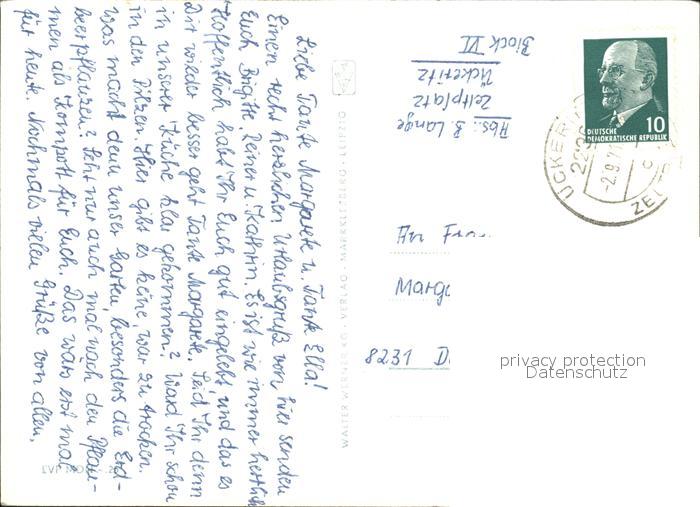 Liebe Tante Margarete u. Tante Ella!
Einen recht herzlichen Urlaubsgruß von hier senden
Euch Brigitte, Reiner u. Kathrin. Es ist wie immer herrlich
Hoffentlich habt Ihr Euch gut eingelebt, und das es
Dir wieder besser geht Tante Margarete. Seid Ihr denn
in unserer Küche klar gekommen? Ward Ihr schon
in den Pilzen. Hier gibt es keine, war zu trocken.
Was macht denn unser Garten, besonders die Erd-
beerpflanzen? Seht nur auch mal nach den Pflau-
men als Kompott für Euch. Das wärs erst mal
für heute. Nochmals vielen Grüße von allen,
WALTER WERNER KG · VERLAG · MARKKLEEBERG · LEIPZIG
Abs.: B. Lange
Zeltplatz
Ückeritz
Block VI
DEUTSCHE
DEMOKRATISCHE REPUBLIK
10
ÜCKERI
2.9.71
ZEL
An Frau
Marga
8231 D
privacy protection
Datenschutz
EVP MDN